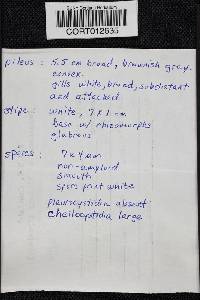 CORT012635
pileus : 5.5 cm broad, brownish grey.
convex.
gills white, broad, subdistant
and attached
stipe : white, 7 x 1 cm
base w/ rhizomorphs
glabrous
spores : 7 x 4 µm
non-amyloid
smooth
spore print white
pleurocystidia absent
cheilocystidia large